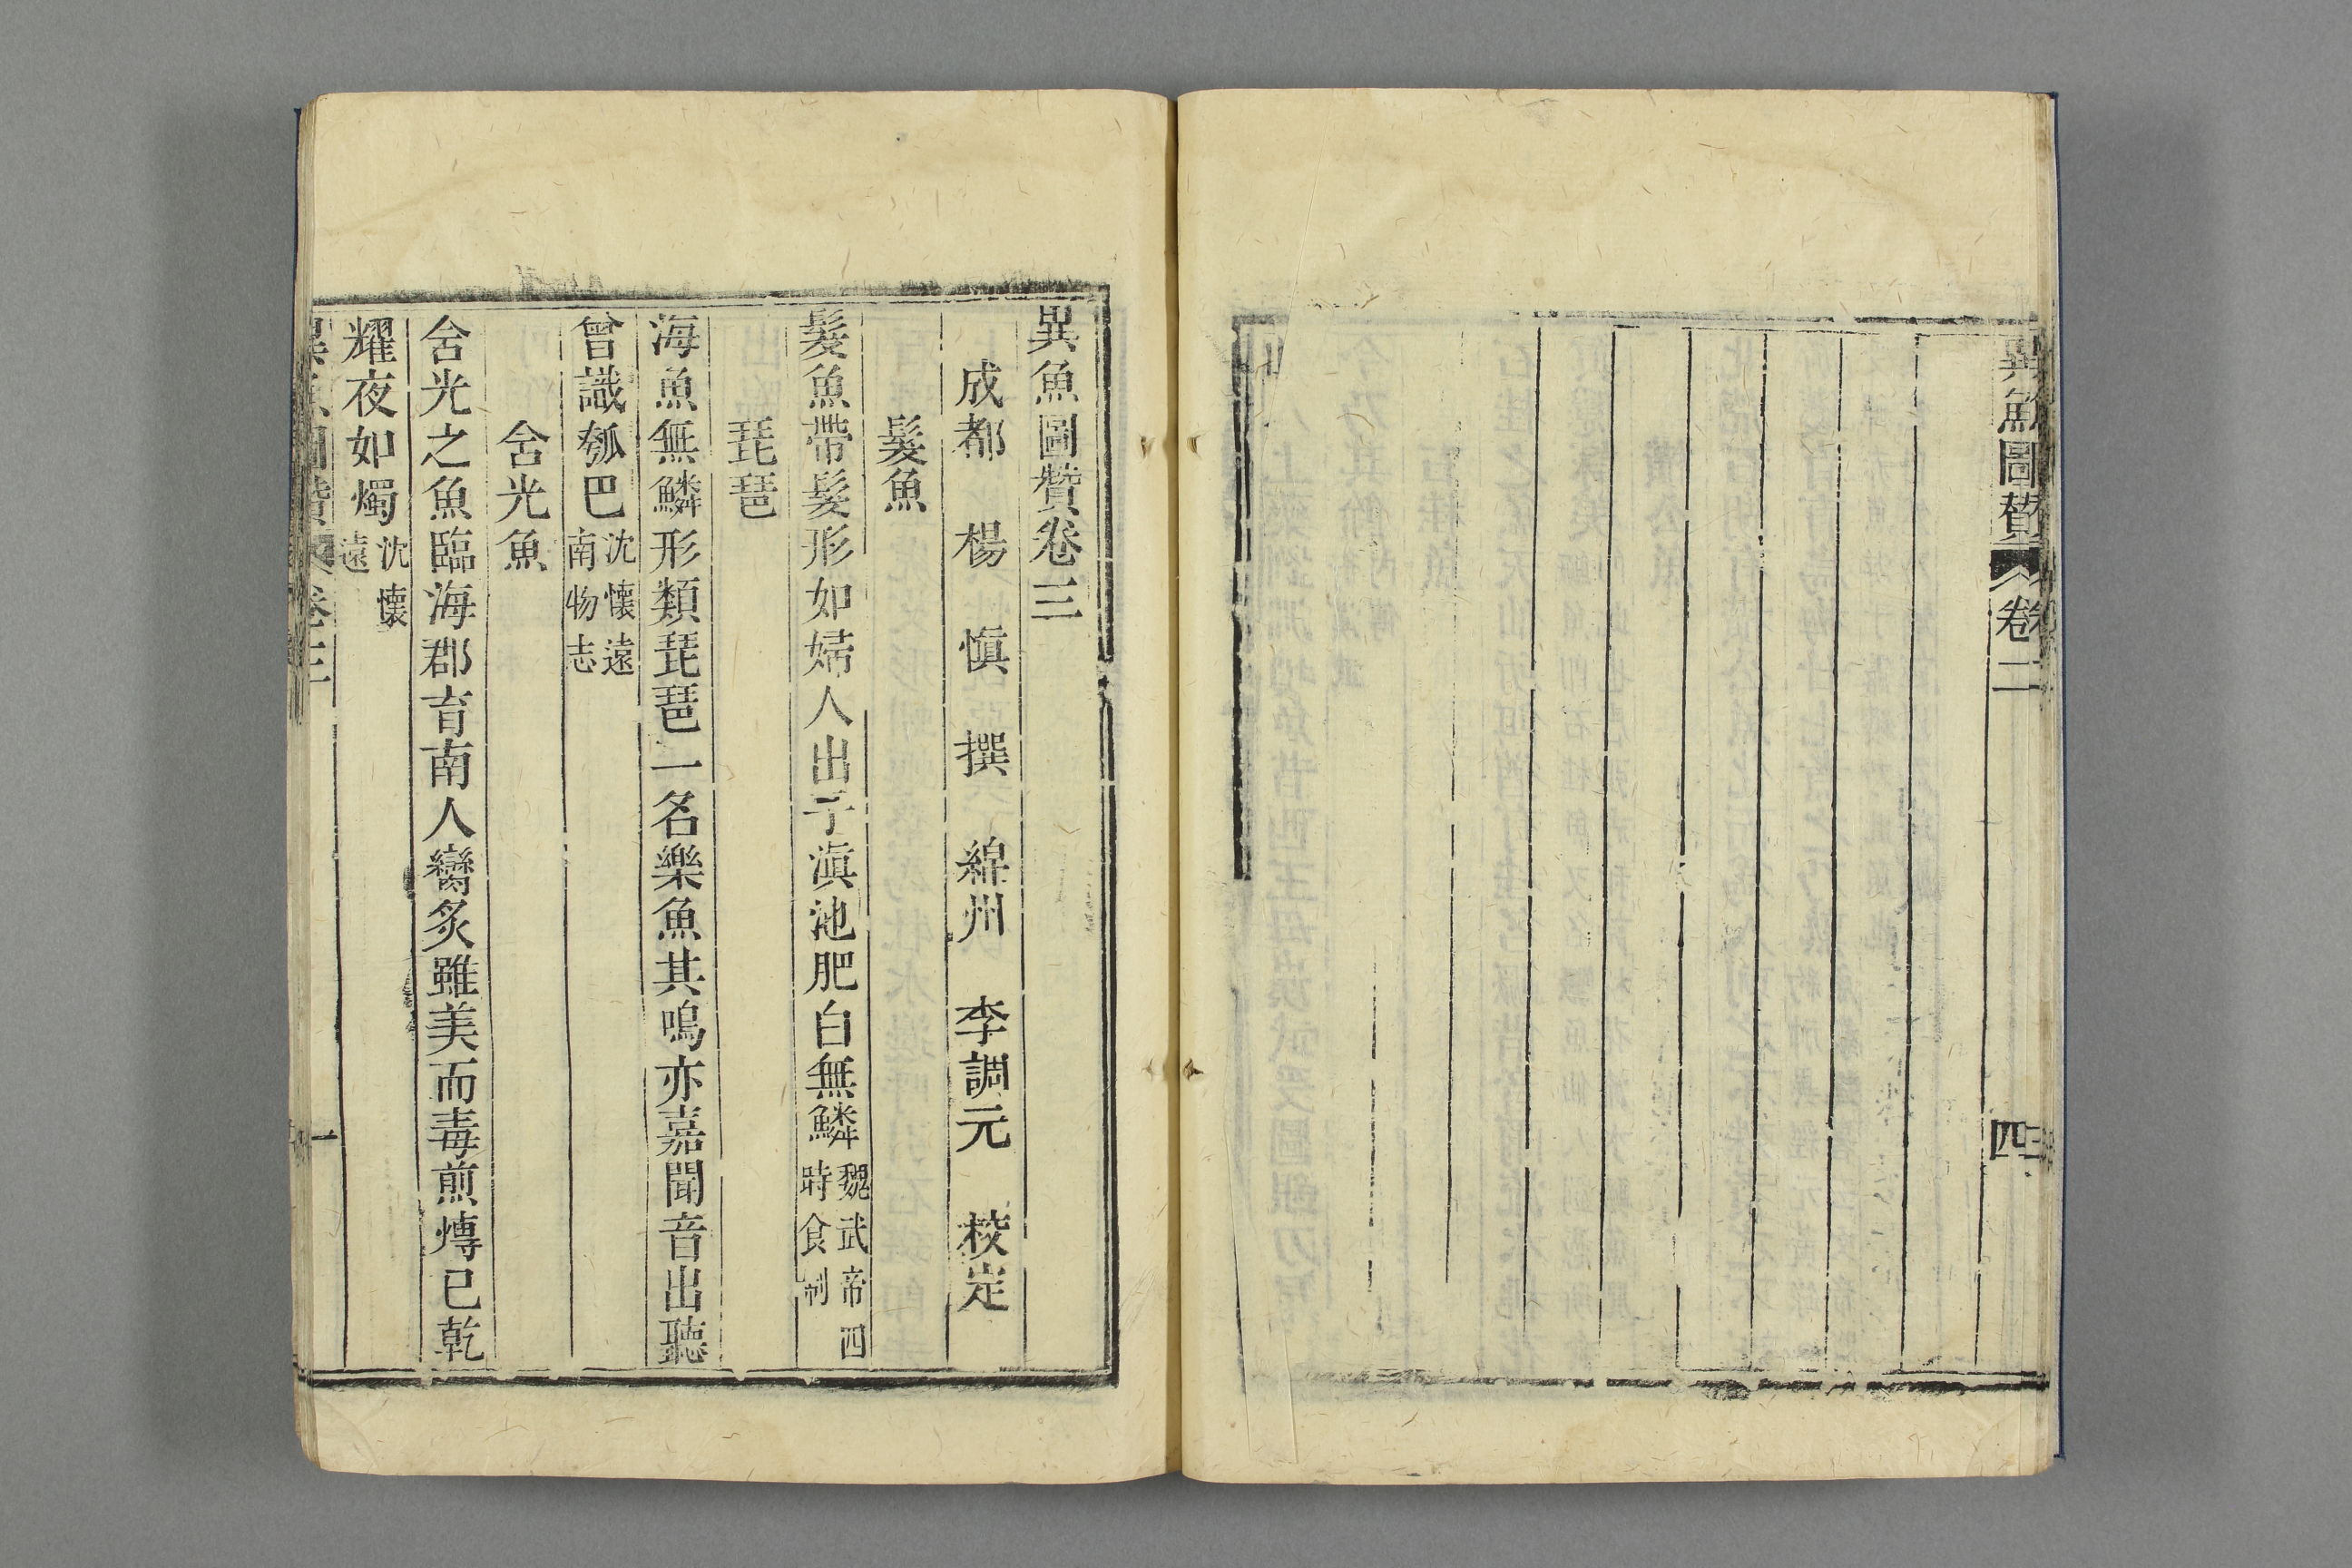 異魚圖贊 卷二 四
異魚圖贊卷三
成都 楊 慎 撰 綿州 李調元 校定
髮魚
髮魚帶髮形如婦人出于滇池肥白無鱗魏武帝四
時食制
琵琶
海魚無鱗形類琵琶一名樂魚其鳴亦嘉聞音出聽
曾識瓠巴沈懷遠
南物志
含光魚
含光之魚臨海郡育南人臠炙雖美而毒煎煿已乾
耀夜如燭沈懷
遠
異魚圖贊 卷三 一